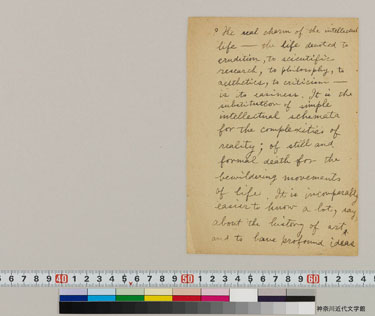 ° The real charm of the intellectual
life — the life devoted to
erudition, to scientific
research, to philosophy, to
aesthetics, to criticism —
is its easiness. It is the
substitution of simple
intellectual schemata
for the complexities of
reality; of still and
formal death for the
bewildering movements
of life. It is incomparably
easier to know a lot, say
about the history of art,
and to have profound ideas
6 7 8 9 40 1 2 3 4 5 6 7 8 9 50 1 2 3 4 5 6 7 8 9 60 1 2 3 4
神奈川近代文学館